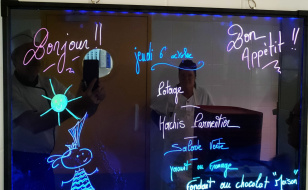 Bonjour !!
jeudi 6 octobre
Bon Appétit !!
Potage
Hachis Parmentier
Salade Verte
Yaourt ou Fromage
Fondant au chocolat "Maison"